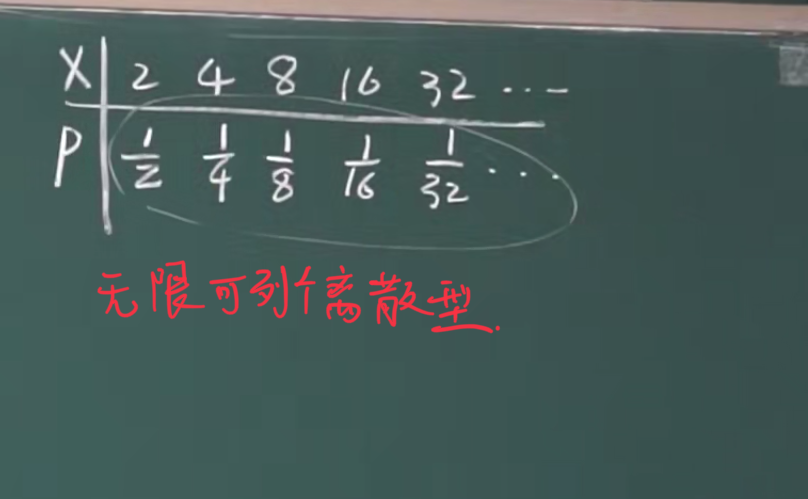 X 2 4 8 16 32 ...
P 1/2 1/4 1/8 1/16 1/32 ...
无限可列个离散型.